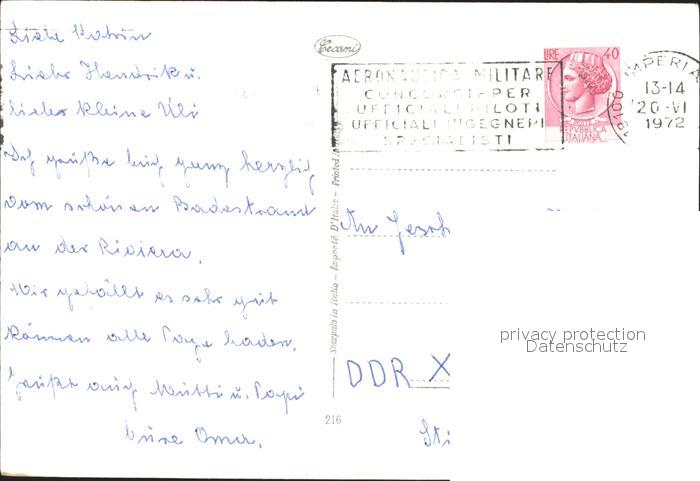 Liebe Katrin
Lieber Hendrik u.
lieber kleine Uli
Ich grüße Euch ganz herzlich
vom schönen Badestrand
an der Riviera.
Mir gefällt es sehr gut
können alle Tage baden.
Grüßt auch Mutti u. Papi
Eure Oma.
Cecami
AERONAUTICA MILITARE
CONCORSI PER
UFFICIALI PILOTI
UFFICIALI INGEGNERI
SPECIALISTI
LIRE 40
REPVBBLICA
ITALIANA
18100 IMPERIA
13-14
20-VI
1972
Stampato in Italia - Importé D'Italie - Printed
An
DDR X
216
privacy protection
Datenschutz